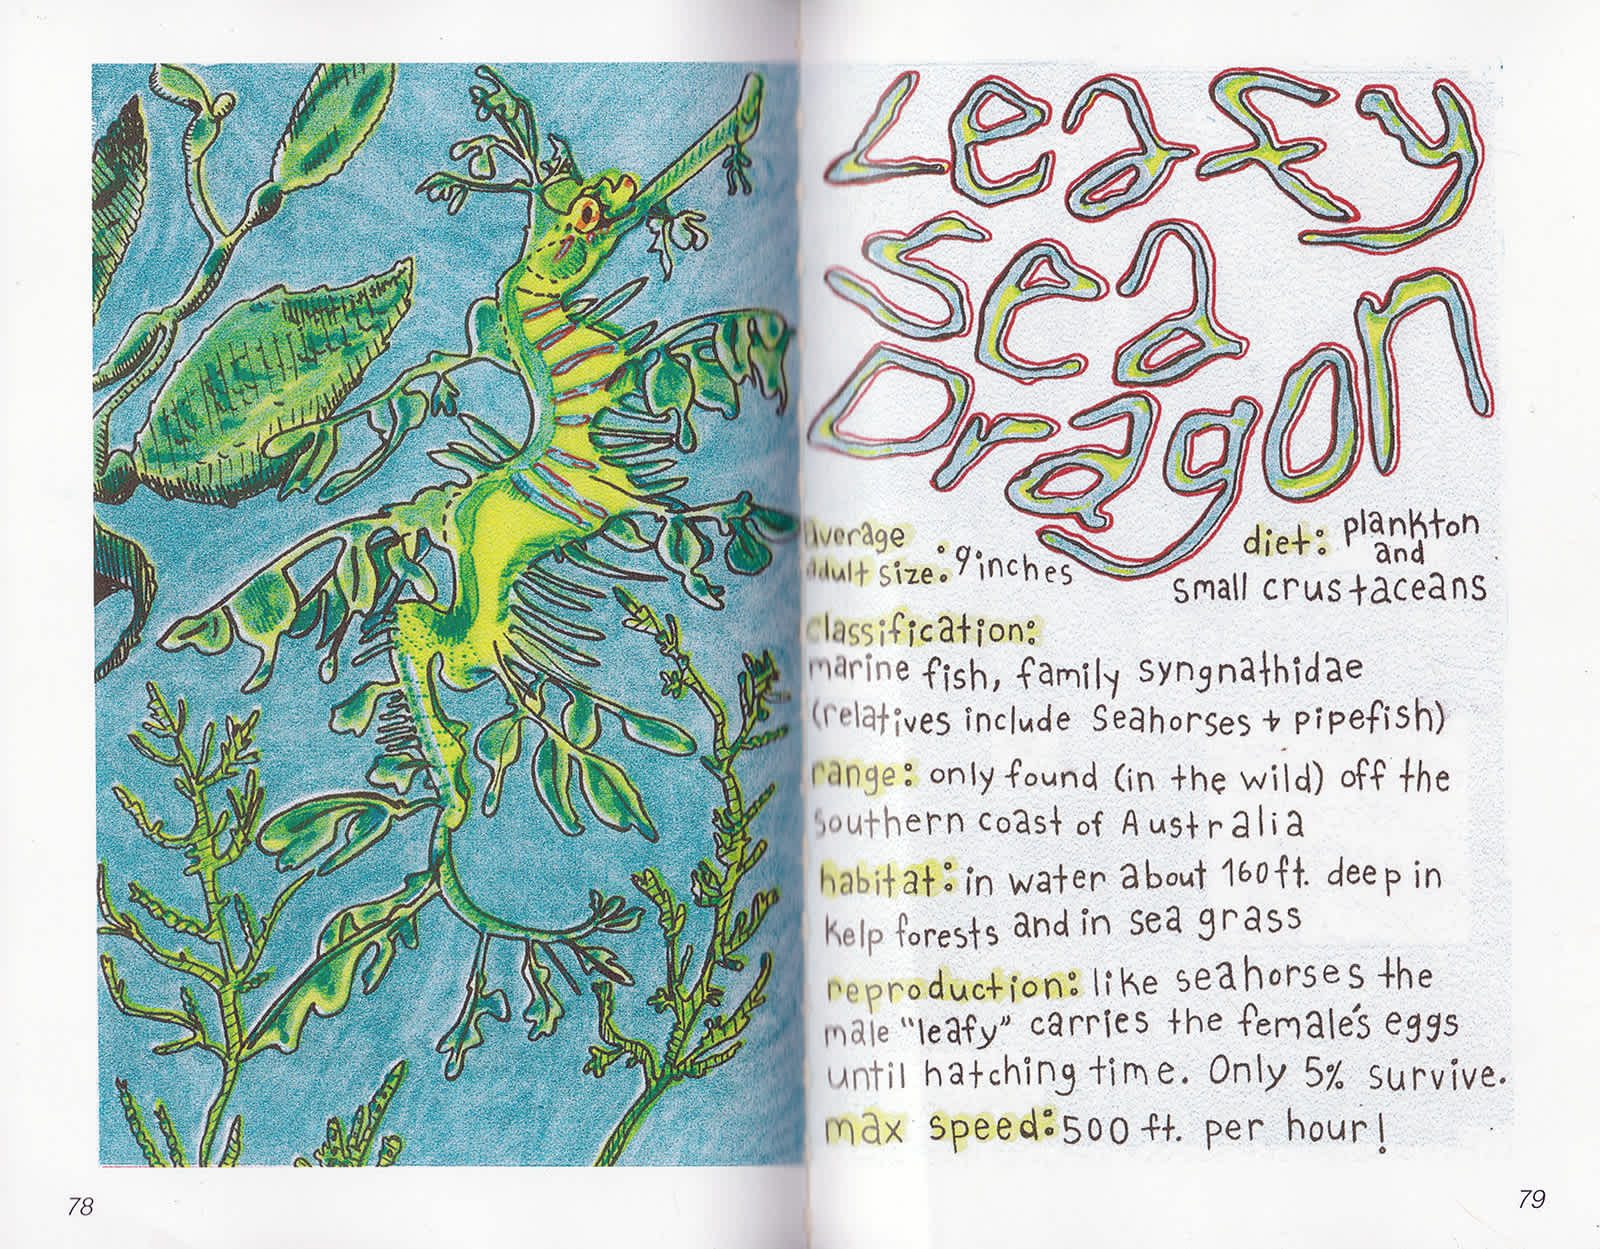 Leafy
Sea
Dragon
average
adult size: 9 inches
diet: plankton
and
small crustaceans
classification:
marine fish, family syngnathidae
(relatives include seahorses + pipefish)
range: only found (in the wild) off the
southern coast of Australia
habitat: in water about 160 ft. deep in
kelp forests and in sea grass
reproduction: like seahorses the
male "leafy" carries the female's eggs
until hatching time. Only 5% survive.
max speed: 500 ft. per hour!
78
79